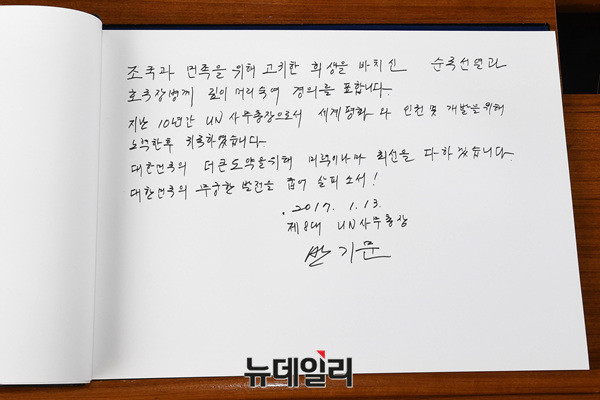 조국과 민족을 위해 고귀한 희생을 바치신 순국선열과
호국장병께 깊이 머리숙여 경의를 표합니다.
지난 10년간 UN 사무총장으로서 세계평화와 인권 및 개발을 위해
노력한후 귀국하였습니다.
대한민국의 더큰도약을위해 미력이나마 최선을 다하겠습니다.
대한민국의 무궁한 발전을 굽어 살피소서!
. 2017. 1. 13.
제8대 UN사무총장
반기문
뉴데일리